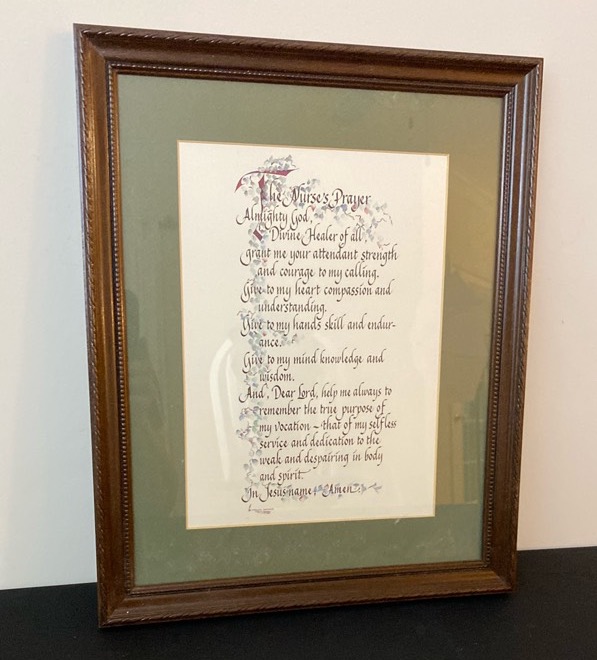 The Nurse's Prayer
Almighty God,
Divine Healer of all,
grant me your attendant strength
and courage to my calling.
Give to my heart compassion and
understanding.
Give to my hands skill and endur-
ance.
Give to my mind knowledge and
wisdom.
And, Dear Lord, help me always to
remember the true purpose of
my vocation ~ that of my selfless
service and dedication to the
weak and despairing in body
and spirit.
In Jesus name + Amen.